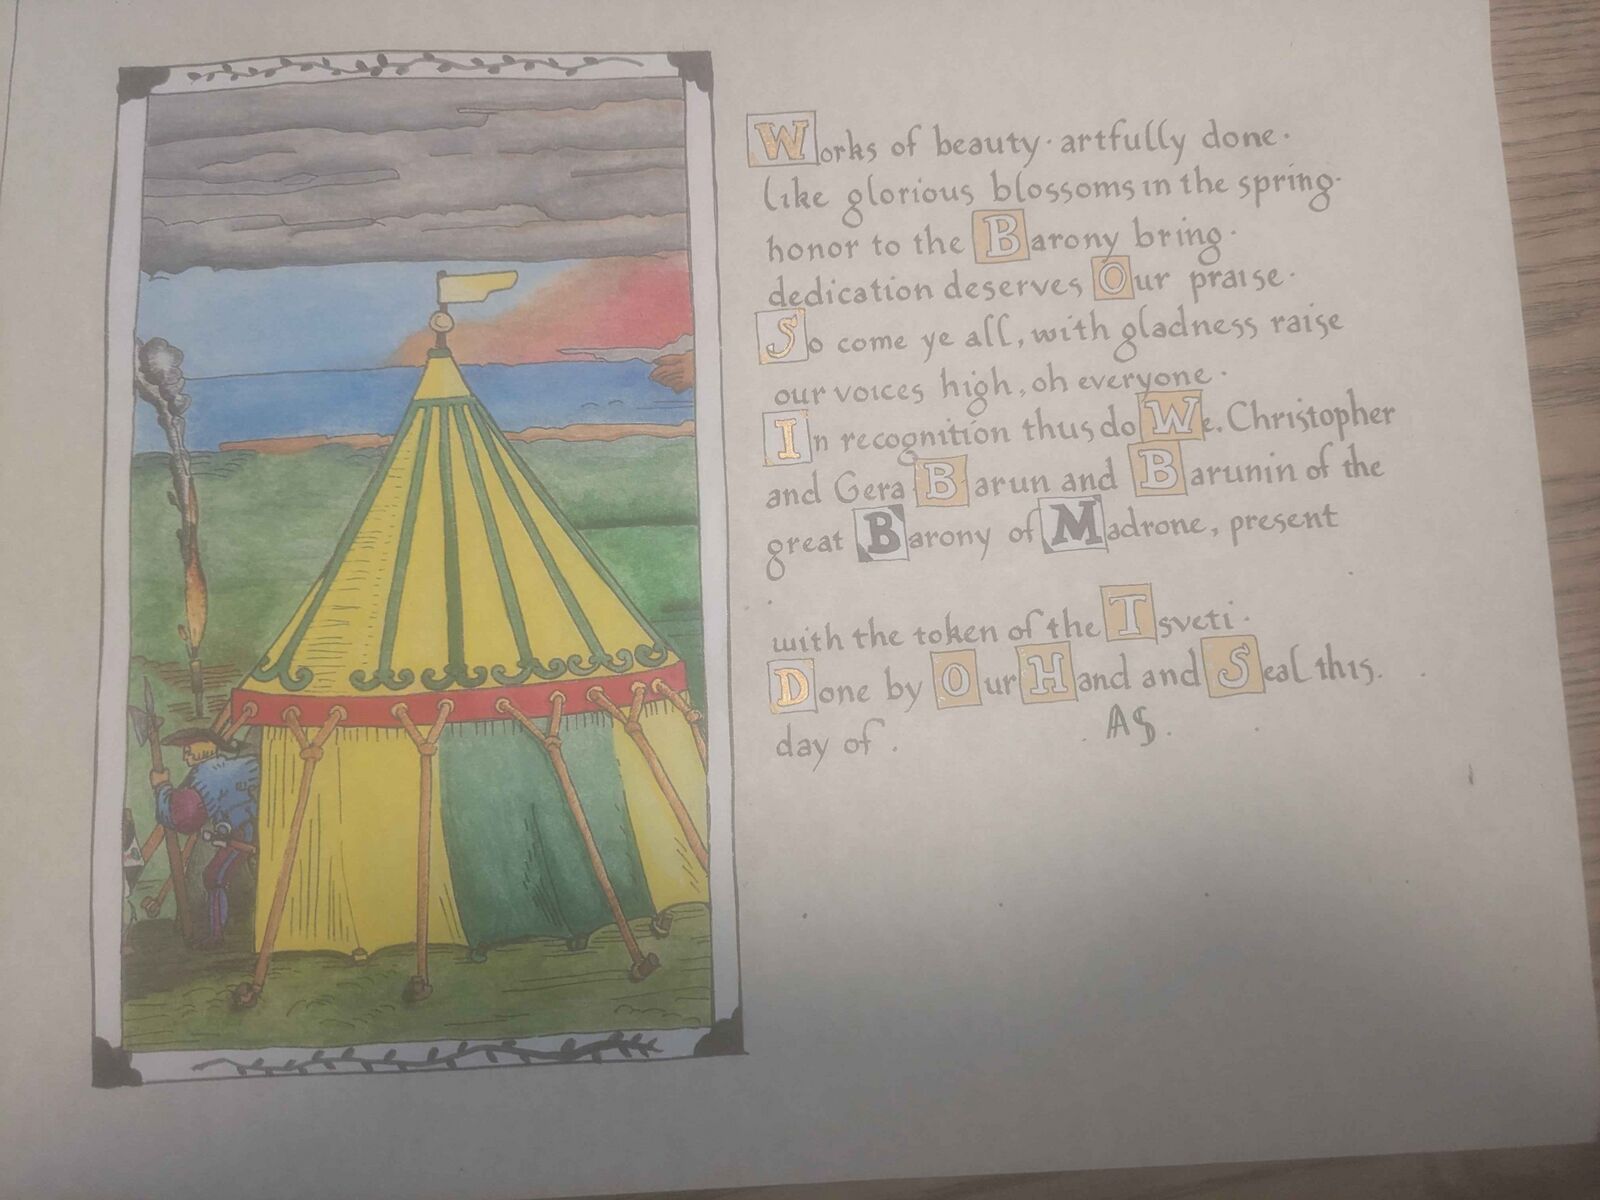 Works of beauty · artfully done ·
like glorious blossoms in the spring ·
honor to the Barony bring ·
dedication deserves Our praise ·
So come ye all, with gladness raise
our voices high, oh everyone ·
In recognition thus do We, Christopher
and Gera Barun and Barunin of the
great Barony of Madrone, present
with the token of the Tsveti ·
Done by Our Hand and Seal this
day of . AS .